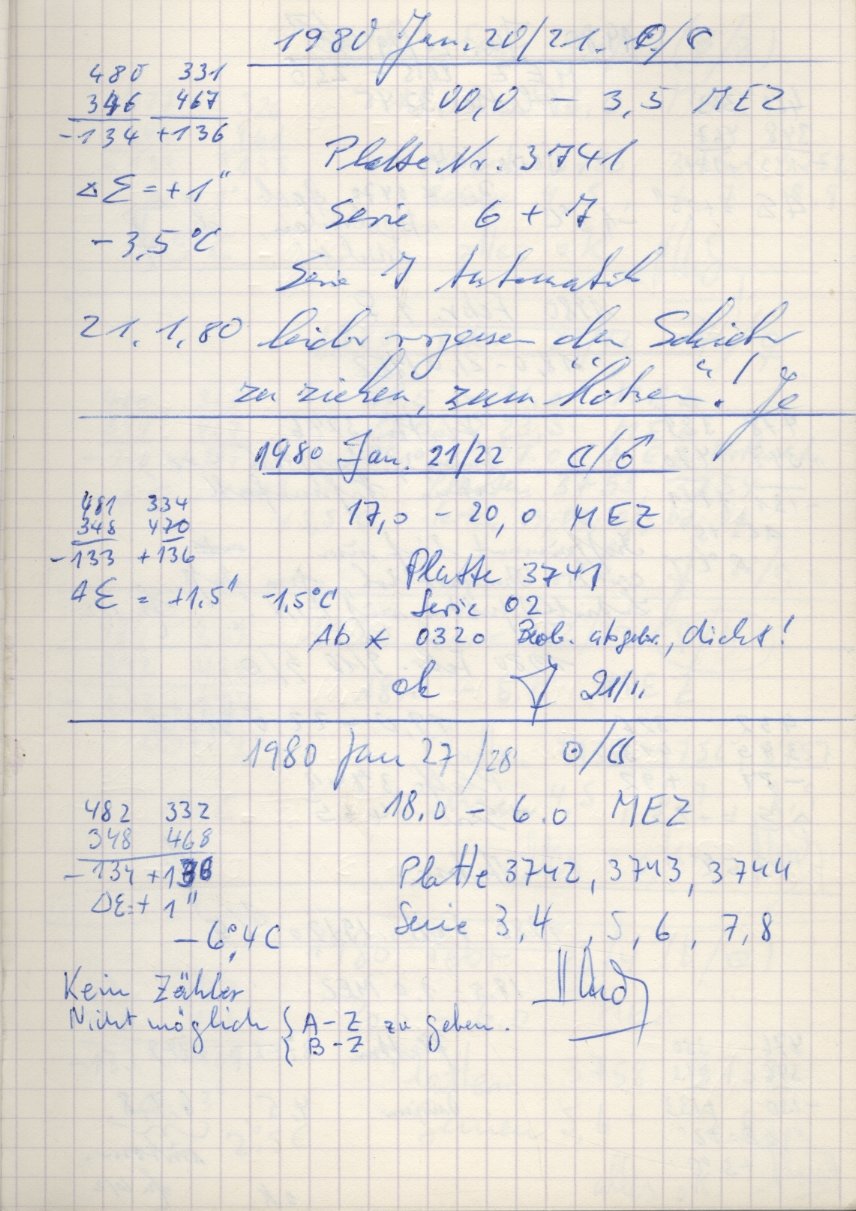 1980 Jan. 20/21. ☉/☾
480 331
346 467
-134 +136
00,0 - 3,5 MEZ
Platte Nr. 3741
ΔΣ = +1"
Serie 6 + 7
-3,5 °C
Serie 7 Automatik
21.1.80 leider vergessen den Schieber
zu ziehen, zum "Kotzen"! Je
1980 Jan. 21/22 ☾/♂
481 334
348 470
-133 +136
17,0 - 20,0 MEZ
Platte 3741
ΔΣ = +1,5" -1,5°C
Serie 02
Ab * 0320 Beob. abgebr., dicht!
ok 21/II
1980 Jan 27/28 ☉/☾
482 332
348 468
-134 +136
18.0 - 6.0 MEZ
Platte 3742, 3743, 3744
ΔΣ=+ 1"
Serie 3,4 , 5, 6, 7,8
-6°,4C
Kein Zähler
Nicht möglich { A-Z zu geben.
{ B-Z